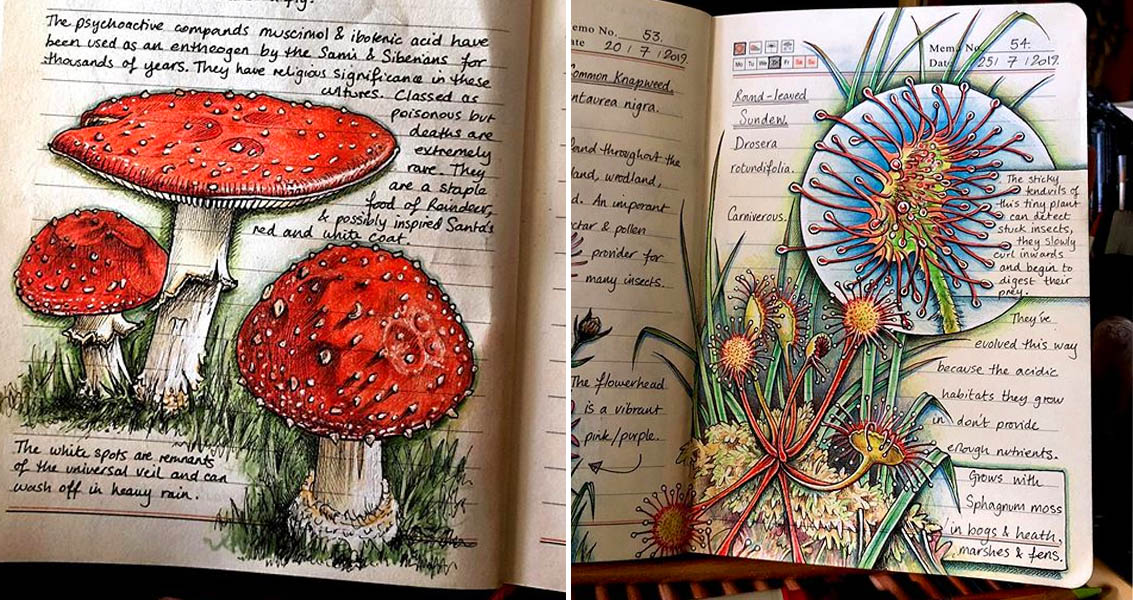 fly.
The psychoactive compands muscimol & ibotenic acid have
been used as an entheogen by the Sami & Siberians for
thousands of years. They have religious significance in these
cultures. Classed as
poisonous but
deaths are
extremely
rare. They
are a staple
food of Raindeer,
& possibly inspired Santa's
red and white coat.
The white spots are remnants
of the universal veil and can
wash off in heavy rain.
emo No. 53.
ate 20 / 7 / 2019.
ommon Knapweed.
ntaurea nigra.
and throughout the
land, wrodland,
d. An imporant
ctar & pollen
provider for
many insects.
The flowerhead
is a vibrant
pink/purple.
Memo No. 54.
Mo Tu We Fr Sa Su
Date 25 / 7 / 2019.
Round-leaved
Sundew.
Drosera
rotundifolia.
Carniverous.
The sticky
tendrils of
this tiny plant
can detect
stuck insects,
they slowly
curl inwards
and begin to
digest their
prey.
They've
evolved this way
because the acidic
habitats they grow
in don't provide
enough nutrients.
Grows with
Sphagnum moss
in bogs & heath,
marshes & fens.